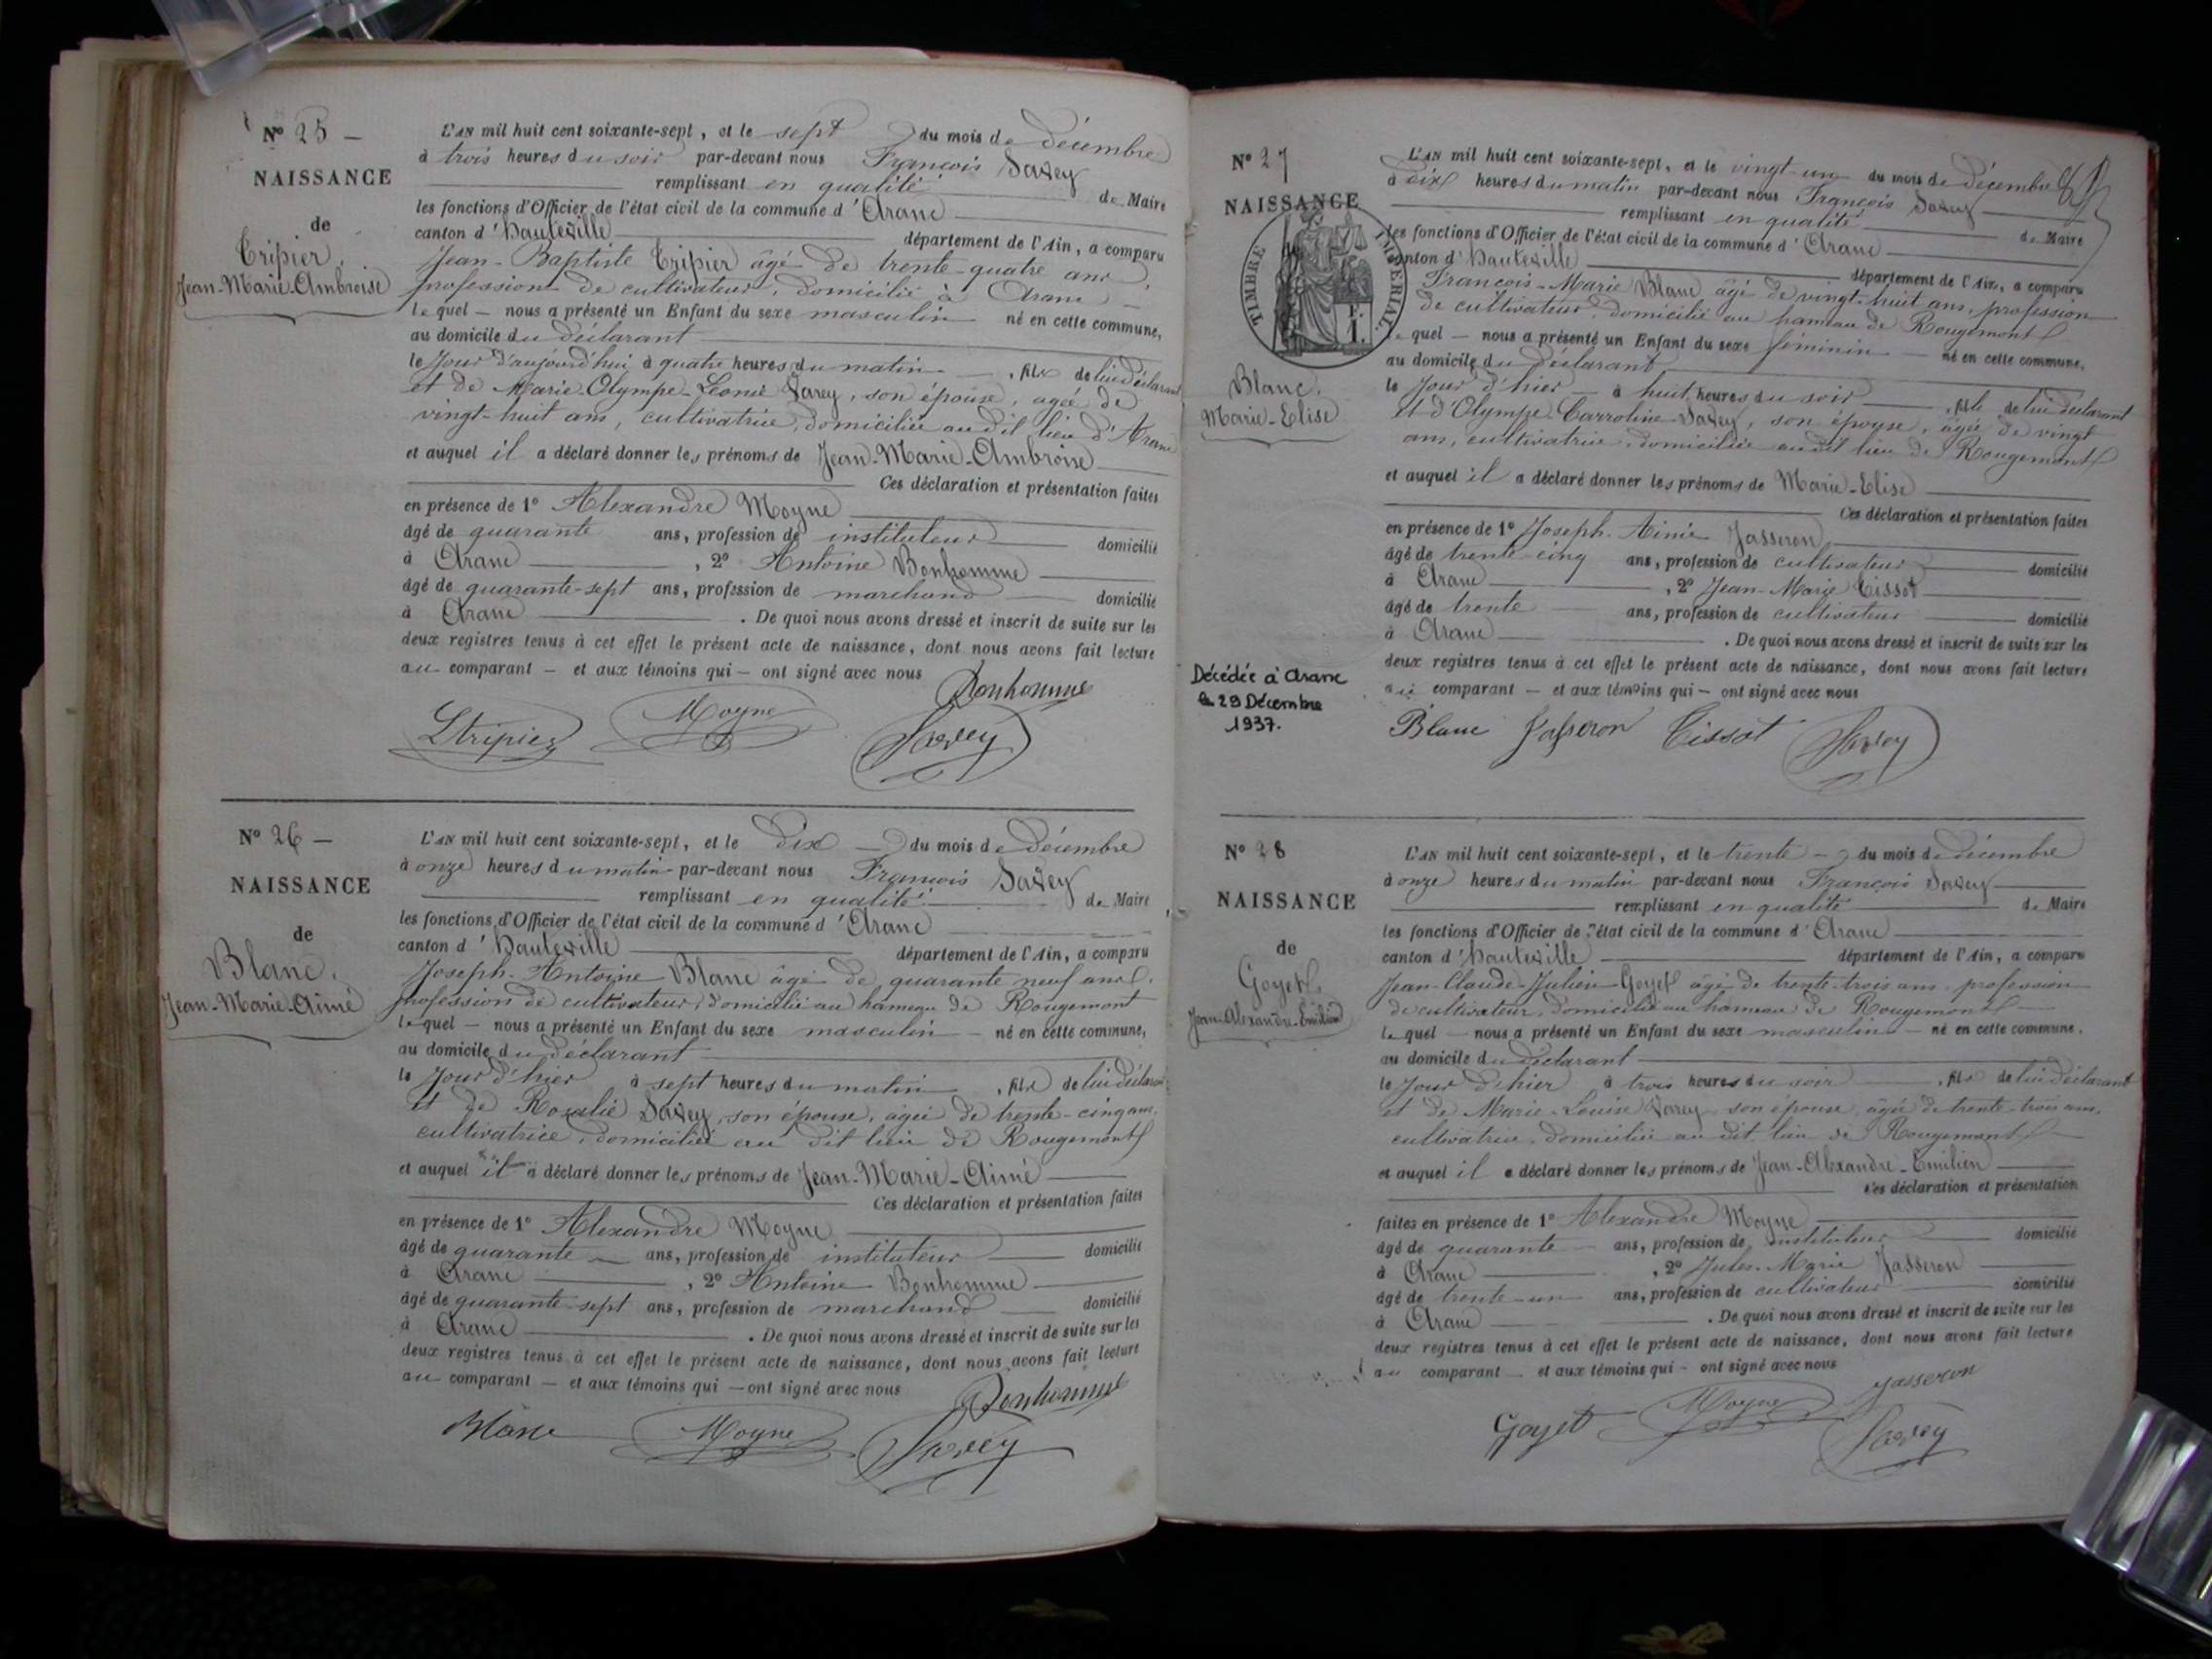 N° 25 —
NAISSANCE
de
Tripier,
Jean-Marie-Ambroise
L'AN mil huit cent soixante-sept, et le sept du mois de Décembre
à trois heures du soir par-devant nous François Savey
remplissant en qualité de Maire
les fonctions d'Officier de l'état civil de la commune d'Aranc
canton d'Hauteville département de l'Ain, a comparu
Jean-Baptiste Tripier âgé de trente-quatre ans,
profession de cultivateur, domicilié à Aranc
lequel — nous a présenté un Enfant du sexe masculin né en cette commune,
au domicile du déclarant
le Jour d'aujourd'hui à quatre heures du matin, fils de lui déclarant
et de Marie-Olympe-Léonie Savey, son épouse, agée de
vingt-huit ans, cultivatrice, domiciliée audit lieu d'Aranc
et auquel il a déclaré donner les prénoms de Jean-Marie-Ambroise
Ces déclaration et présentation faites
en présence de 1° Alexandre Moyne
âgé de quarante ans, profession de instituteur domicilié
à Aranc, 2° Antoine Bonhomme
âgé de quarante-sept ans, profession de marchand domicilié
à Aranc. De quoi nous avons dressé et inscrit de suite sur les
deux registres tenus à cet effet le présent acte de naissance, dont nous avons fait lecture
au comparant — et aux témoins qui — ont signé avec nous
Bonhomme
Moyne
Savey
N° 26 —
NAISSANCE
de
Blanc,
Jean-Marie-Aimé
L'AN mil huit cent soixante-sept, et le Dix du mois de Décembre
à onze heures du matin par-devant nous François Savey
remplissant en qualité de Maire
les fonctions d'Officier de l'état civil de la commune d'Aranc
canton d'Hauteville département de l'Ain, a comparu
Joseph-Antoine Blanc âgé de quarante neuf ans,
profession de cultivateur, domicilié au hameau de Rougemont
lequel — nous a présenté un Enfant du sexe masculin — né en cette commune,
au domicile du déclarant
le Jour d'hier à sept heures du matin, fils de lui déclarant
et de Rosalie Savey, son épouse, agée de trente-cinq ans,
cultivatrice, domiciliée au dit lieu de Rougemont
et auquel il a déclaré donner les prénoms de Jean-Marie-Aimé
Ces déclaration et présentation faites
en présence de 1° Alexandre Moyne
âgé de quarante — ans, profession de instituteur domicilié
à Aranc, 2° Antoine Bonhomme
âgé de quarante-sept ans, profession de marchand domicilié
à Aranc. De quoi nous avons dressé et inscrit de suite sur les
deux registres tenus à cet effet le présent acte de naissance, dont nous avons fait lecture
au comparant — et aux témoins qui — ont signé avec nous
Bonhomme
Blanc Moyne Savey
N° 27
NAISSANCE
TIMBRE IMPÉRIAL
Blanc,
Marie-Elise
Décédée à Aranc
le 29 Décembre
1937.
L'AN mil huit cent soixante-sept, et le vingt-un du mois de Décembre
à dix heures du matin par-devant nous François Savey
remplissant en qualité de Maire
les fonctions d'Officier de l'état civil de la commune d'Aranc
canton d'Hauteville département de l'Ain, a comparu
François-Marie Blanc âgé de vingt-huit ans, profession
de cultivateur, domicilié au hameau de Rougemont
lequel — nous a présenté un Enfant du sexe féminin — né en cette commune,
au domicile du déclarant
le Jour d'hier — à huit heures du soir, fille de lui déclarant
et d'Olympe-Carroline Savey, son épouse, âgée de vingt
ans, cultivatrice, domiciliée au dit lieu de Rougemont
et auquel il a déclaré donner les prénoms de Marie-Elise
Ces déclaration et présentation faites
en présence de 1° Joseph-Aimé Jasseron
âgé de trente-cinq ans, profession de cultivateur domicilié
à Aranc, 2° Jean-Marie Tissot
âgé de trente ans, profession de cultivateur domicilié
à Aranc. De quoi nous avons dressé et inscrit de suite sur les
deux registres tenus à cet effet le présent acte de naissance, dont nous avons fait lecture
au comparant — et aux témoins qui — ont signé avec nous
Blanc Jasseron Tissot Savey
N° 28
NAISSANCE
de
Goyet,
Jean-Alexandre-Emilien
L'AN mil huit cent soixante-sept, et le trente — du mois de Décembre
à onze heures du matin par-devant nous François Savey
remplissant en qualité de Maire
les fonctions d'Officier de l'état civil de la commune d'Aranc
canton d'Hauteville département de l'Ain, a comparu
Jean-Claude-Julien Goyet âgé de trente-trois ans, profession
de cultivateur, domicilié au hameau de Rougemont
lequel nous a présenté un Enfant du sexe masculin — né en cette commune,
au domicile du déclarant
le Jour d'hier à trois heures du soir, fils de lui déclarant
et de Marie-Louise Savey son épouse, agée de trente-trois ans,
cultivatrice, domiciliée au dit lieu de Rougemont
et auquel il a déclaré donner les prénoms de Jean-Alexandre-Emilien
Ces déclaration et présentation
faites en présence de 1° Alexandre Moyne
âgé de quarante ans, profession de instituteur domicilié
à Aranc, 2° Jules-Marie Jasseron
âgé de trente-un ans, profession de cultivateur domicilié
à Aranc. De quoi nous avons dressé et inscrit de suite sur les
deux registres tenus à cet effet le présent acte de naissance, dont nous avons fait lecture
au comparant — et aux témoins qui — ont signé avec nous
Jasseron
Goyet Moyne Savey